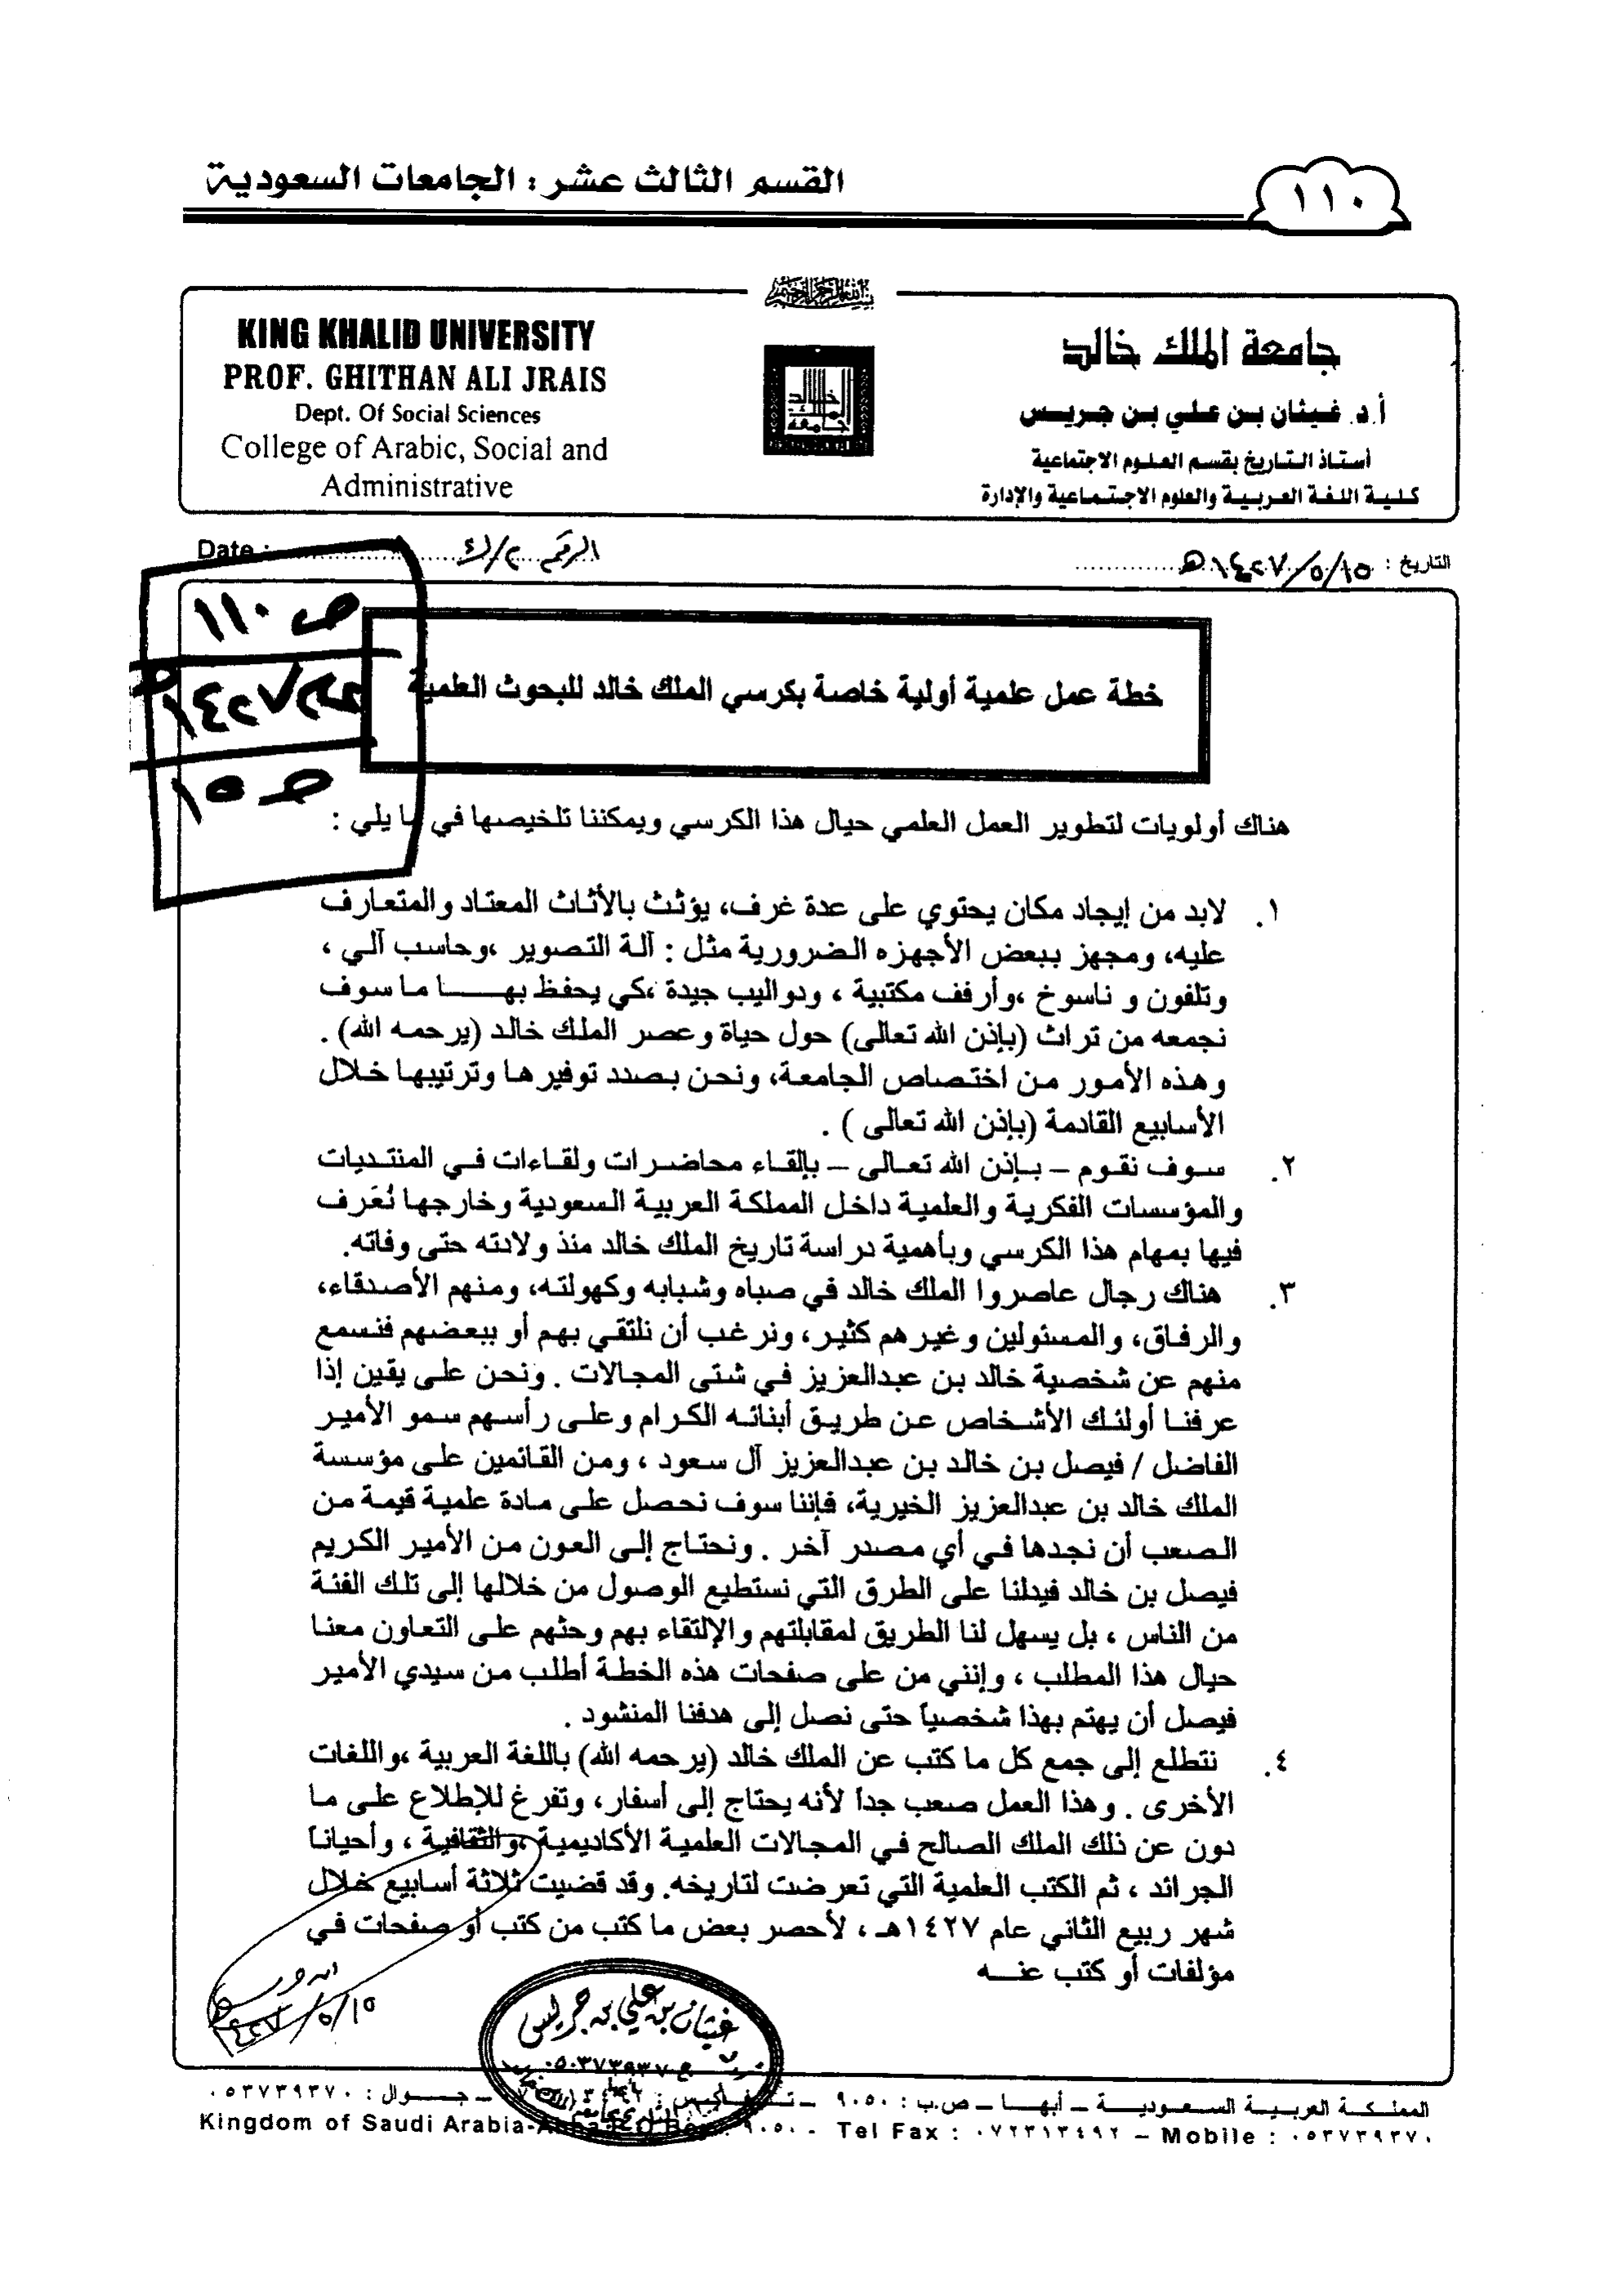 القسم الثالث عشر : الجامعات السعودية
١١٠
بسم الله الرحمن الرحيم
KING KHALID UNIVERSITY
PROF. GHITHAN ALI JRAIS
Dept. Of Social Sciences
College of Arabic, Social and
Administrative
جامعة الملك خالد
أ.د. غيثان بن علي بن جريس
أستاذ التاريخ بقسم العلوم الاجتماعية
كلية اللغة العربية والعلوم الاجتماعية والإدارة
التاريخ : ١٥/٥/١٤٢٧هـ
Date :
الرقم ٢/ك
ص ١١٠
ص ١٥
خطة عمل علمية أولية خاصة بكرسي الملك خالد للبحوث العلمية
هناك أولويات لتطوير العمل العلمي حيال هذا الكرسي ويمكننا تلخيصها في ما يلي :
١. لابد من إيجاد مكان يحتوي على عدة غرف، يؤثث بالأثاث المعتاد والمتعارف
عليه، ومجهز ببعض الأجهزه الضرورية مثل : آلة التصوير ،وحاسب آلي ،
وتلفون و ناسوخ ،وأرفف مكتبية ، ودواليب جيدة ،كي يحفظ بهـــا ما سوف
نجمعه من تراث (بإذن الله تعالى) حول حياة وعصر الملك خالد (يرحمه الله) .
وهذه الأمور من اختصاص الجامعة، ونحن بصدد توفيرها وترتيبها خلال
الأسابيع القادمة (بإذن الله تعالى ) .
٢. سوف نقوم – بإذن الله تعالى – بإلقاء محاضرات ولقاءات في المنتديات
والمؤسسات الفكرية والعلمية داخل المملكة العربية السعودية وخارجها نُعَرف
فيها بمهام هذا الكرسي وبأهمية دراسة تاريخ الملك خالد منذ ولادته حتى وفاته.
٣. هناك رجال عاصروا الملك خالد في صباه وشبابه وكهولته، ومنهم الأصدقاء،
والرفاق، والمسئولين وغيرهم كثير، ونرغب أن نلتقي بهم أو ببعضهم فنسمع
منهم عن شخصية خالد بن عبدالعزيز في شتى المجالات . ونحن على يقين إذا
عرفنا أولئك الأشخاص عن طريق أبنائه الكرام وعلى رأسهم سمو الأمير
الفاضل / فيصل بن خالد بن عبدالعزيز آل سعود ، ومن القائمين على مؤسسة
الملك خالد بن عبدالعزيز الخيرية، فإننا سوف نحصل على مادة علمية قيمة من
الصعب أن نجدها في أي مصدر آخر . ونحتاج إلى العون من الأمير الكريم
فيصل بن خالد فيدلنا على الطرق التي نستطيع الوصول من خلالها إلى تلك الفئة
من الناس ، بل يسهل لنا الطريق لمقابلتهم والإلتقاء بهم وحثهم على التعاون معنا
حيال هذا المطلب ، وإنني من على صفحات هذه الخطة أطلب من سيدي الأمير
فيصل أن يهتم بهذا شخصياً حتى نصل إلى هدفنا المنشود .
٤. نتطلع إلى جمع كل ما كتب عن الملك خالد (يرحمه الله) باللغة العربية ،واللغات
الأخرى . وهذا العمل صعب جداً لأنه يحتاج إلى أسفار، وتفرغ للإطلاع على ما
دون عن ذلك الملك الصالح في المجالات العلمية الأكاديمية ،والثقافية ، وأحياناً
الجرائد ، ثم الكتب العلمية التي تعرضت لتاريخه. وقد قضيت ثلاثة أسابيع خلال
شهر ربيع الثاني عام ١٤٢٧هـ ، لأحصر بعض ما كتب من كتب أو صفحات في
مؤلفات أو كتب عنـــه
١٥/٥/١٤٢٧
غيثان بن علي بن جريس
المملكـة العربيـة السـعوديـــة – أبهـــا – ص.ب : ٩٠٥٠ – تـلـفـاكـس : – جـــوال : ٠٥٣٧٣٩٣٧٠
Kingdom of Saudi Arabia- ٩٠٥٠ - Tel Fax : ٠٧٢٣١٣٤٩٢ – Mobile : ٠٥٣٧٣٩٣٧٠